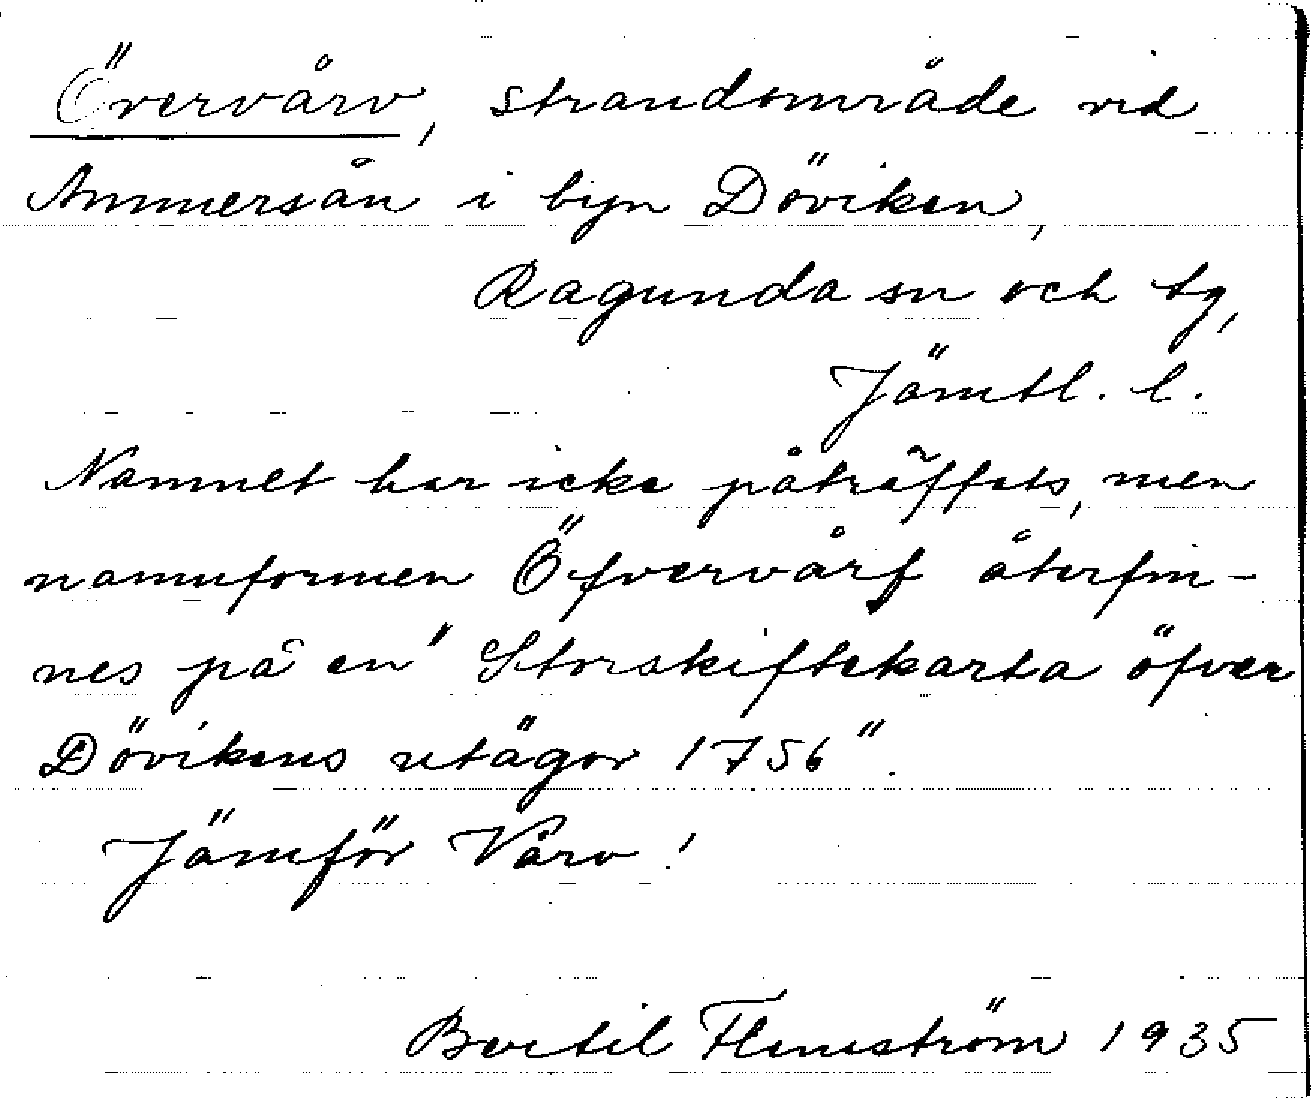 Övervårv, strandområde vid
Ammersån i byn Döviken,
Ragunda sn och tg,
Jämtl. l.
Namnet har icke påträffats, men
namnformen Öfvervårf återfin-
nes på en "Storskiftekarta öfver
Dövikens utägor 1756".
Jämför Vårv!
Bertil Flemström 1935